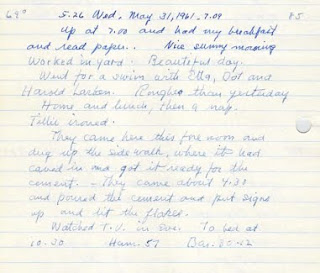 69° 5.26 Wed. May 31, 1961. 7.09 85
Up at 7.00 and had my breakfast
and read paper. Nice sunny morning
Worked in yard. Beautiful day.
Went for a swim with Etta, Dot and
Harold Larsen. Rougher than yesterday
Home and lunch, then a nap.
Tillie ironed.
They came here this fore noon and
dug up the side walk, where it had
caved in and got it ready for the
cement. - They came about 4.30
and poured the cement and put signs
up and lit the flares.
Watched T.V. in eve. To bed at
10.30 Hum. 57 Bar.